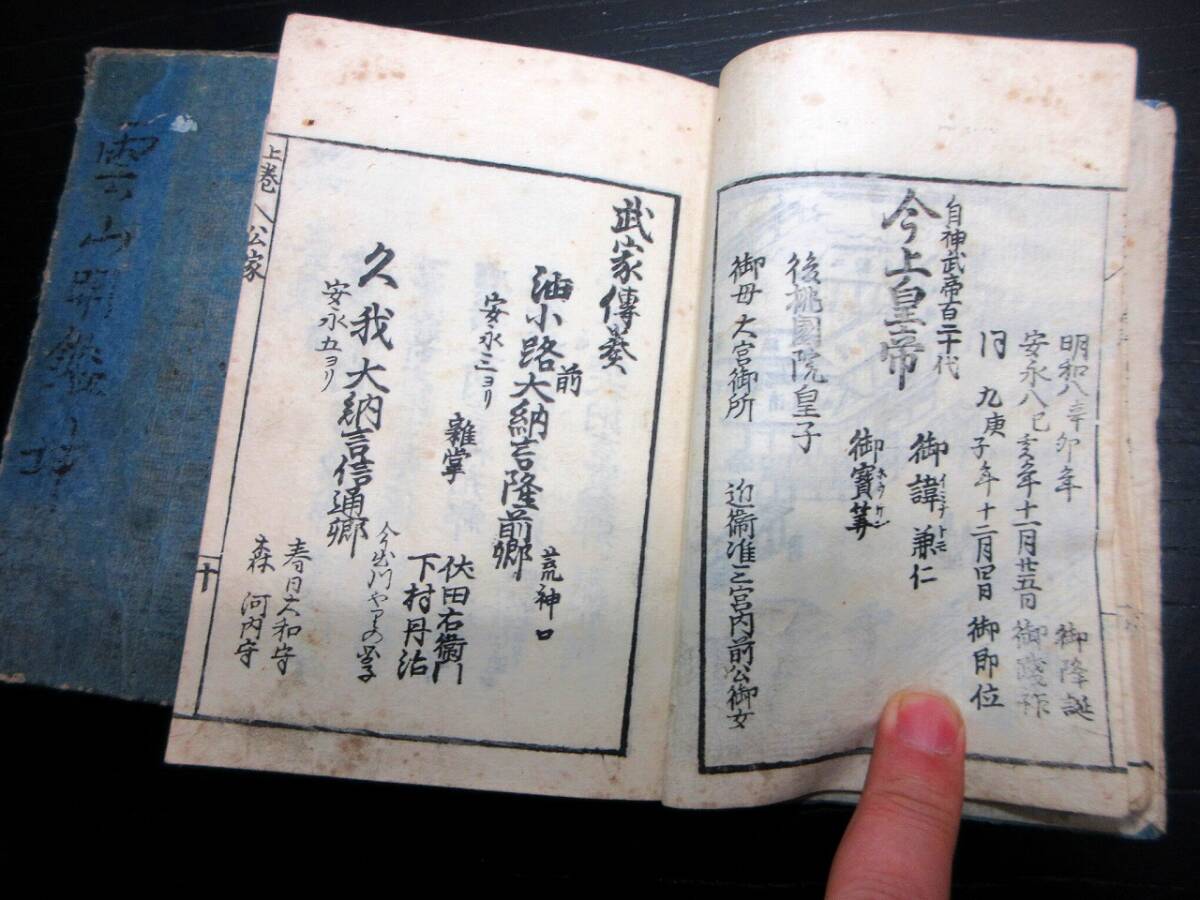 明和八辛卯年 御降誕
安永八己亥年十一月廿五日 御踐祚
同 九庚子年十二月四日 御即位
自神武帝百二十代
今上皇帝
御諱兼仁
イミナ トモ
御寶
後桃園院皇子
御母 大宮御所 近衞准三宮内前公御女
武家傳奏
油小路前大納言隆前卿
荒神口
安永三ヨリ
雜掌
伏田右衞門
下村丹治
久我大納言信通卿
安永五ヨリ
春日大和守
森 河内守
上巻
公家
十
雲